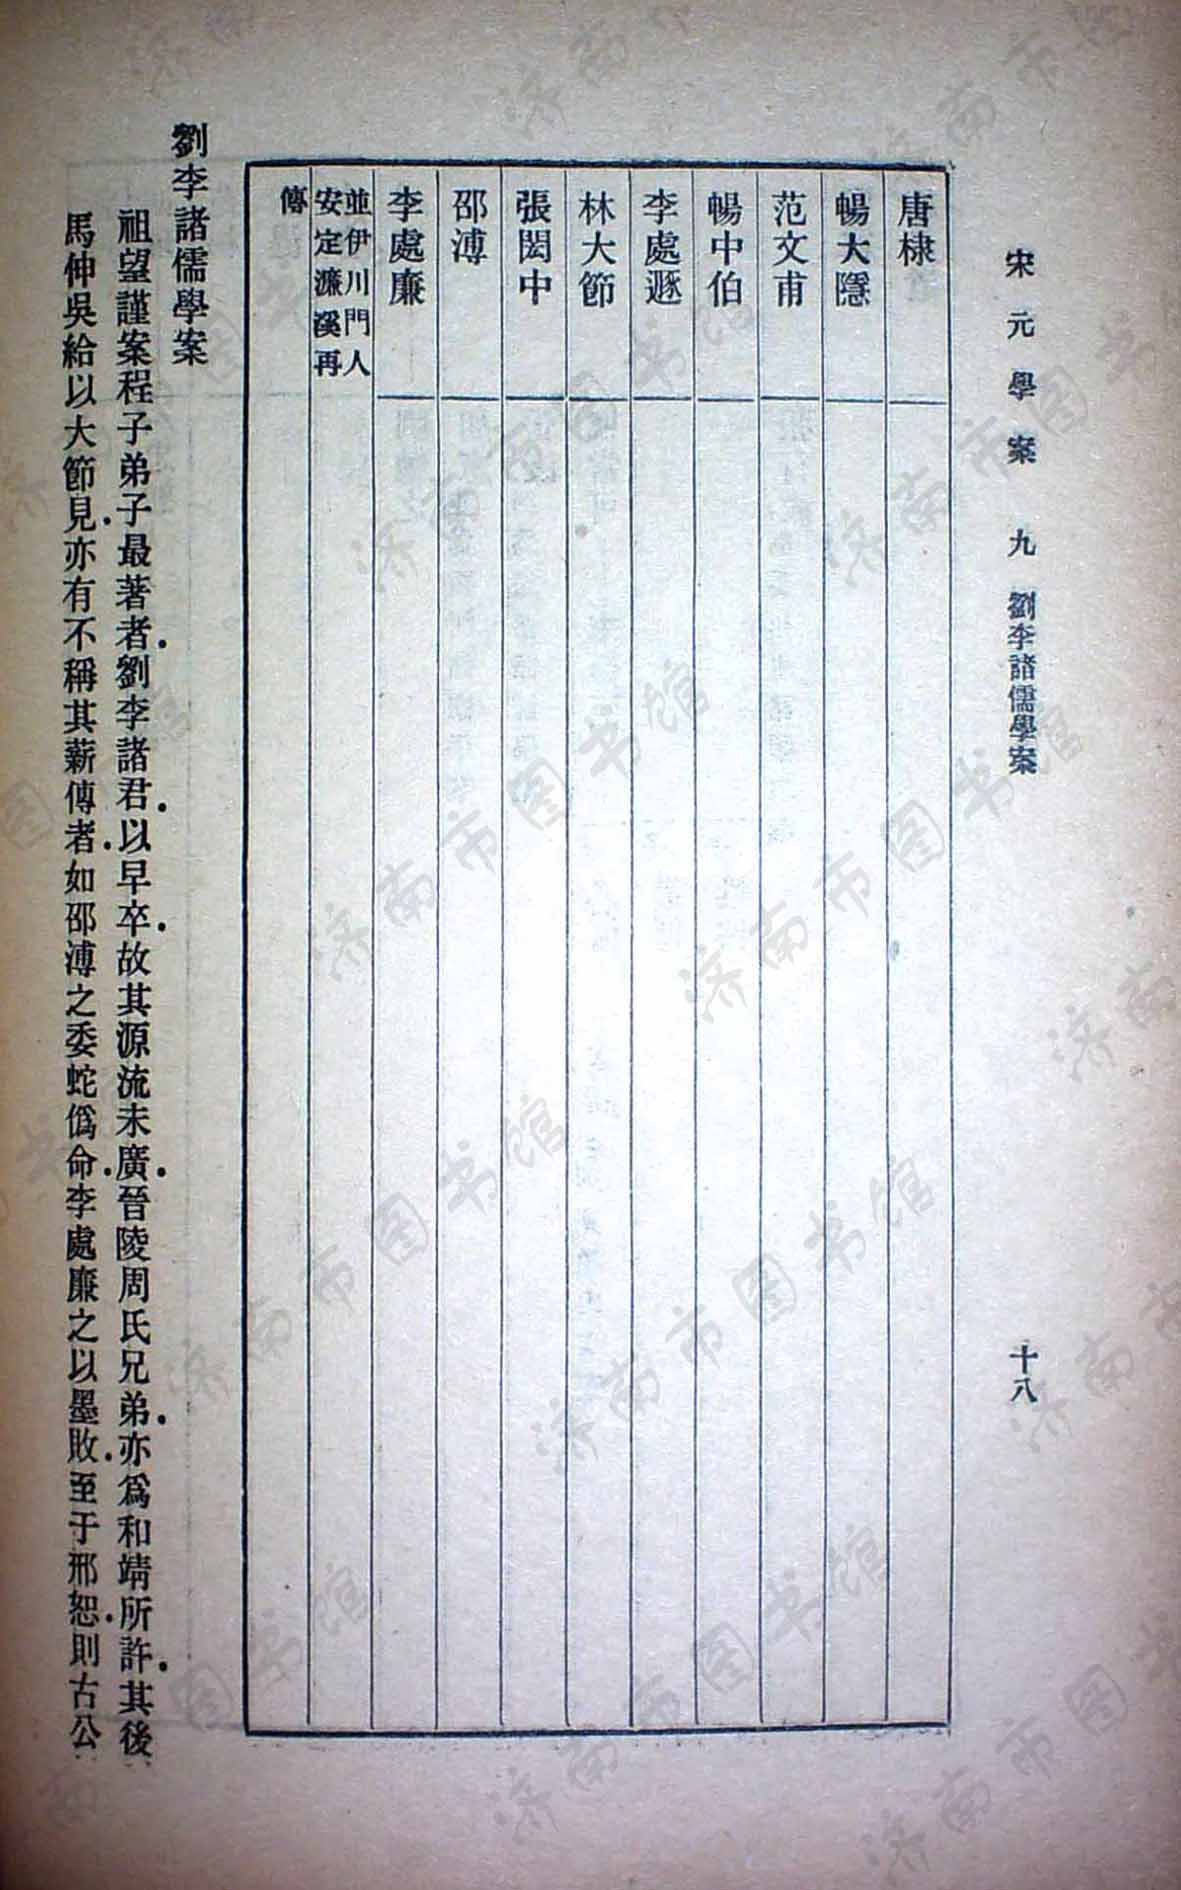 宋元學案 九 劉李諸儒學案 十八
唐棣
暢大隱
范文甫
暢中伯
李處遯
林大節
張閎中
邵溥
李處廉
並伊川門人
安定濂溪再
傳
劉李諸儒學案
祖望謹案程子弟子最著者劉李諸君以早卒故其源流未廣晉陵周氏兄弟亦爲和靖所許其後
馬伸吳給以大節見亦有不稱其薪傳者如邵溥之委蛇僞命李處廉之以墨敗至于邢恕則古公
济南市图书馆